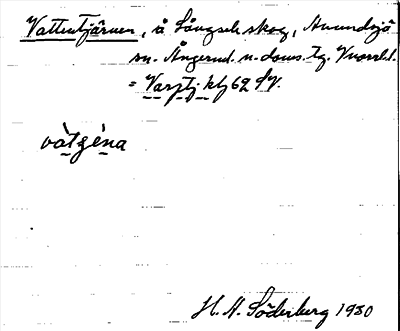 Vattentjärnen, å Långsele skog, Anundsjö
sn. Ångerml. n. doms. tg. Vnorrl. l.
= Varptj. kbl 62 SV.
vàtʒéna
H. A. Söderberg 1930